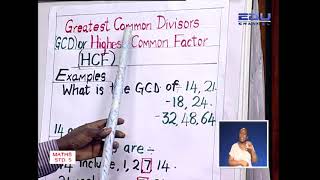 EDU
CHANNEL
Greatest Common Divisors
GCD) or Highest Common Factor
(HCF)
Examples
What is the GCD of - 14, 21
-18, 24.
-32,48,64
14
are -
include, 1, 2, 7, 14.
MATHS
STD. 5